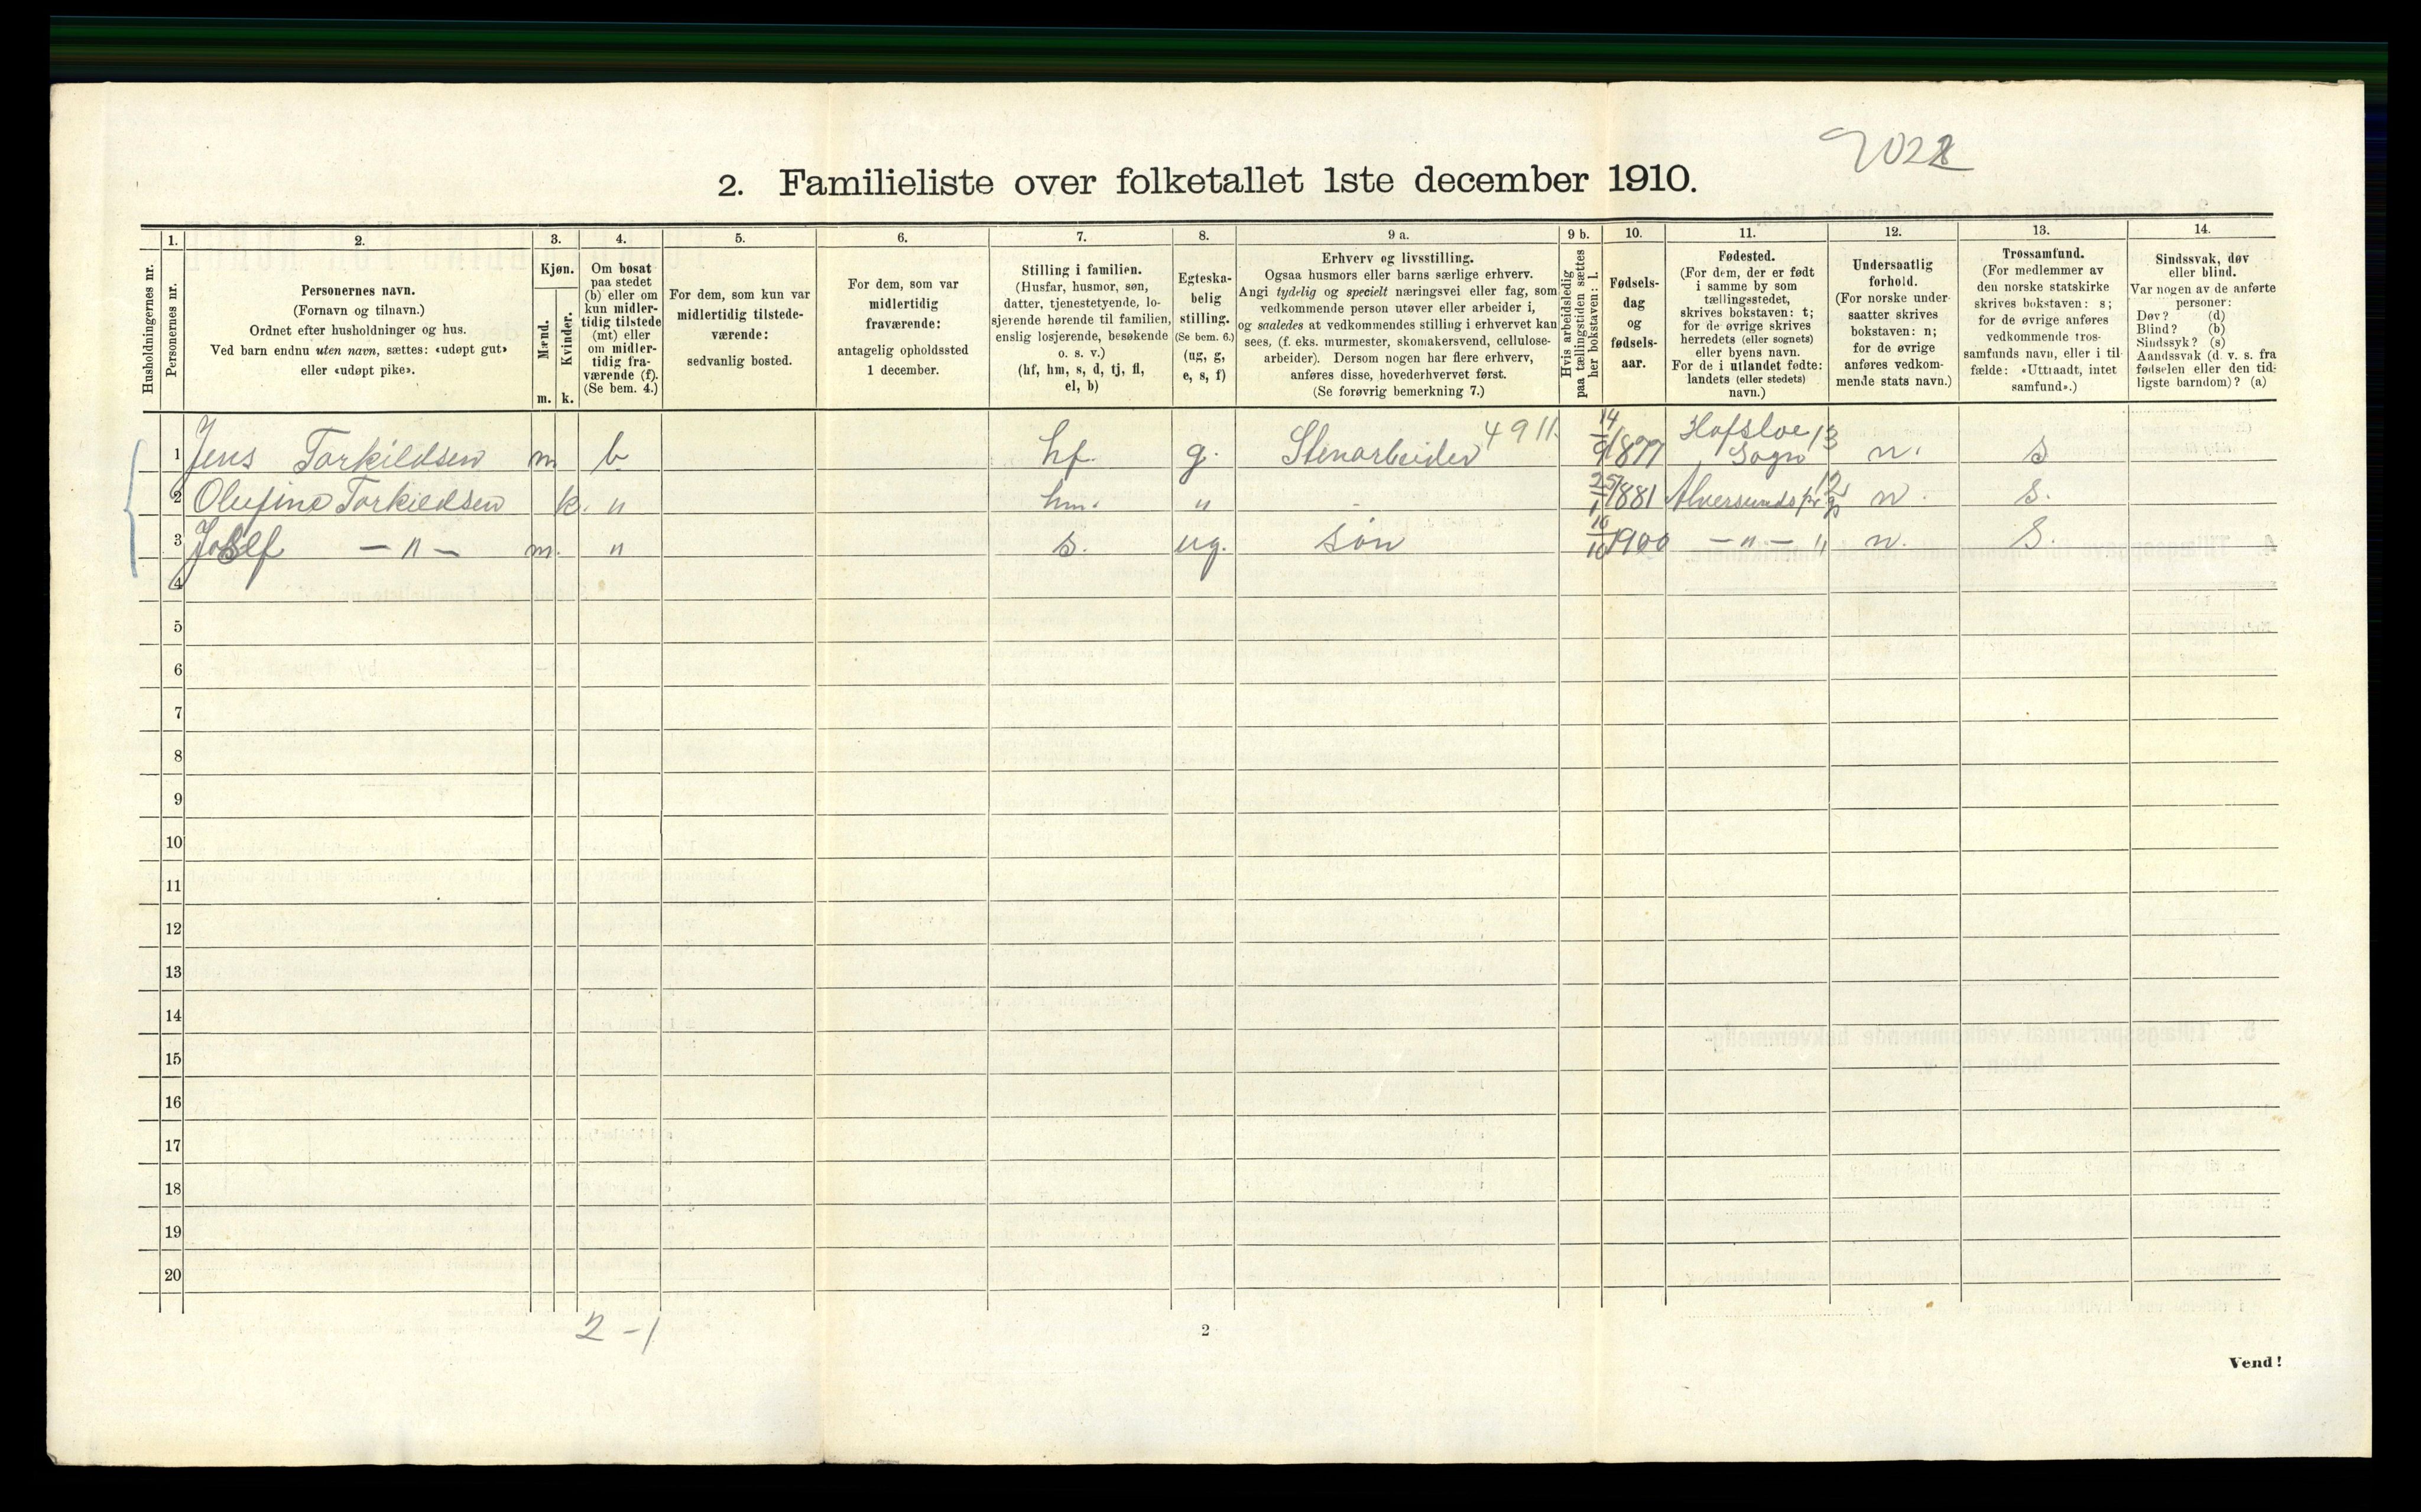 2. Familieliste over folketallet 1ste december 1910.
1. 2. 3. 4. 5. 6. 7. 8. 9 a. 9 b. 10. 11. 12. 13. 14.
Husholdningernes nr.
Personernes nr.
Personernes navn.
(Fornavn og tilnavn.)
Ordnet efter husholdninger og hus.
Ved barn endnu uten navn, sættes: «udøpt gut»
eller «udøpt pike».
Kjøn.
Mænd.
Kvinder.
m. k.
Om bosat
paa stedet
(b) eller om
kun midler-
tidig tilstede
(mt) eller
om midler-
tidig fra-
værende (f).
(Se bem. 4.)
For dem, som kun var
midlertidig tilstede-
værende:
sedvanlig bosted.
For dem, som var
midlertidig
fraværende:
antagelig opholdssted
1 december.
Stilling i familien.
(Husfar, husmor, søn,
datter, tjenestetyende, lo-
sjerende hørende til familien,
enslig losjerende, besøkende
o. s. v.)
(hf, hm, s, d, tj, fl,
el, b)
Egteska-
belig
stilling.
(Se bem. 6.)
(ug, g,
e, s, f)
Erhverv og livsstilling.
Ogsaa husmors eller barns særlige erhverv.
Angi tydelig og specielt næringsvei eller fag, som
vedkommende person utøver eller arbeider i,
og saaledes at vedkommendes stilling i erhvervet kan
sees, (f. eks. murmester, skomakersvend, cellulose-
arbeider). Dersom nogen har flere erhverv,
anføres disse, hovederhvervet først.
(Se forøvrig bemerkning 7.)
Hvis arbeidsledig
paa tællingstiden sættes
her bokstaven: l.
Fødsels-
dag
og
fødsels-
aar.
Fødested.
(For dem, der er født
i samme by som
tællingsstedet,
skrives bokstaven: t;
for de øvrige skrives
herredets (eller sognets)
eller byens navn.
For de i utlandet fødte:
landets (eller stedets)
navn.)
Undersaatlig
forhold.
(For norske under-
saatter skrives
bokstaven: n;
for de øvrige
anføres vedkom-
mende stats navn.)
Trossamfund.
(For medlemmer av
den norske statskirke
skrives bokstaven: s;
for de øvrige anføres
vedkommende tros-
samfunds navn, eller i til-
fælde: «Uttraadt, intet
samfund».)
Sindssvak, døv
eller blind.
Var nogen av de anførte
personer:
Døv? (d)
Blind? (b)
Sindssyk? (s)
Aandssvak (d. v. s. fra
fødselen eller den tid-
ligste barndom)? (a)
1 Jens Torkildsen m b hf. g. Stenarbeider 4911. 14/9 1877 Hafsloe Sogn 13 n. s
2 Olufine Torkildsen k. " hm. " - 25/1 1881 Alversunds 12 n. s.
3 Josef — " — m. " s. ug. søn 10/10 1900 — " — " n. S.
4
5
6
7
8
9
10
11
12
13
14
15
16
17
18
19
20
2 - 1
2
Vend!